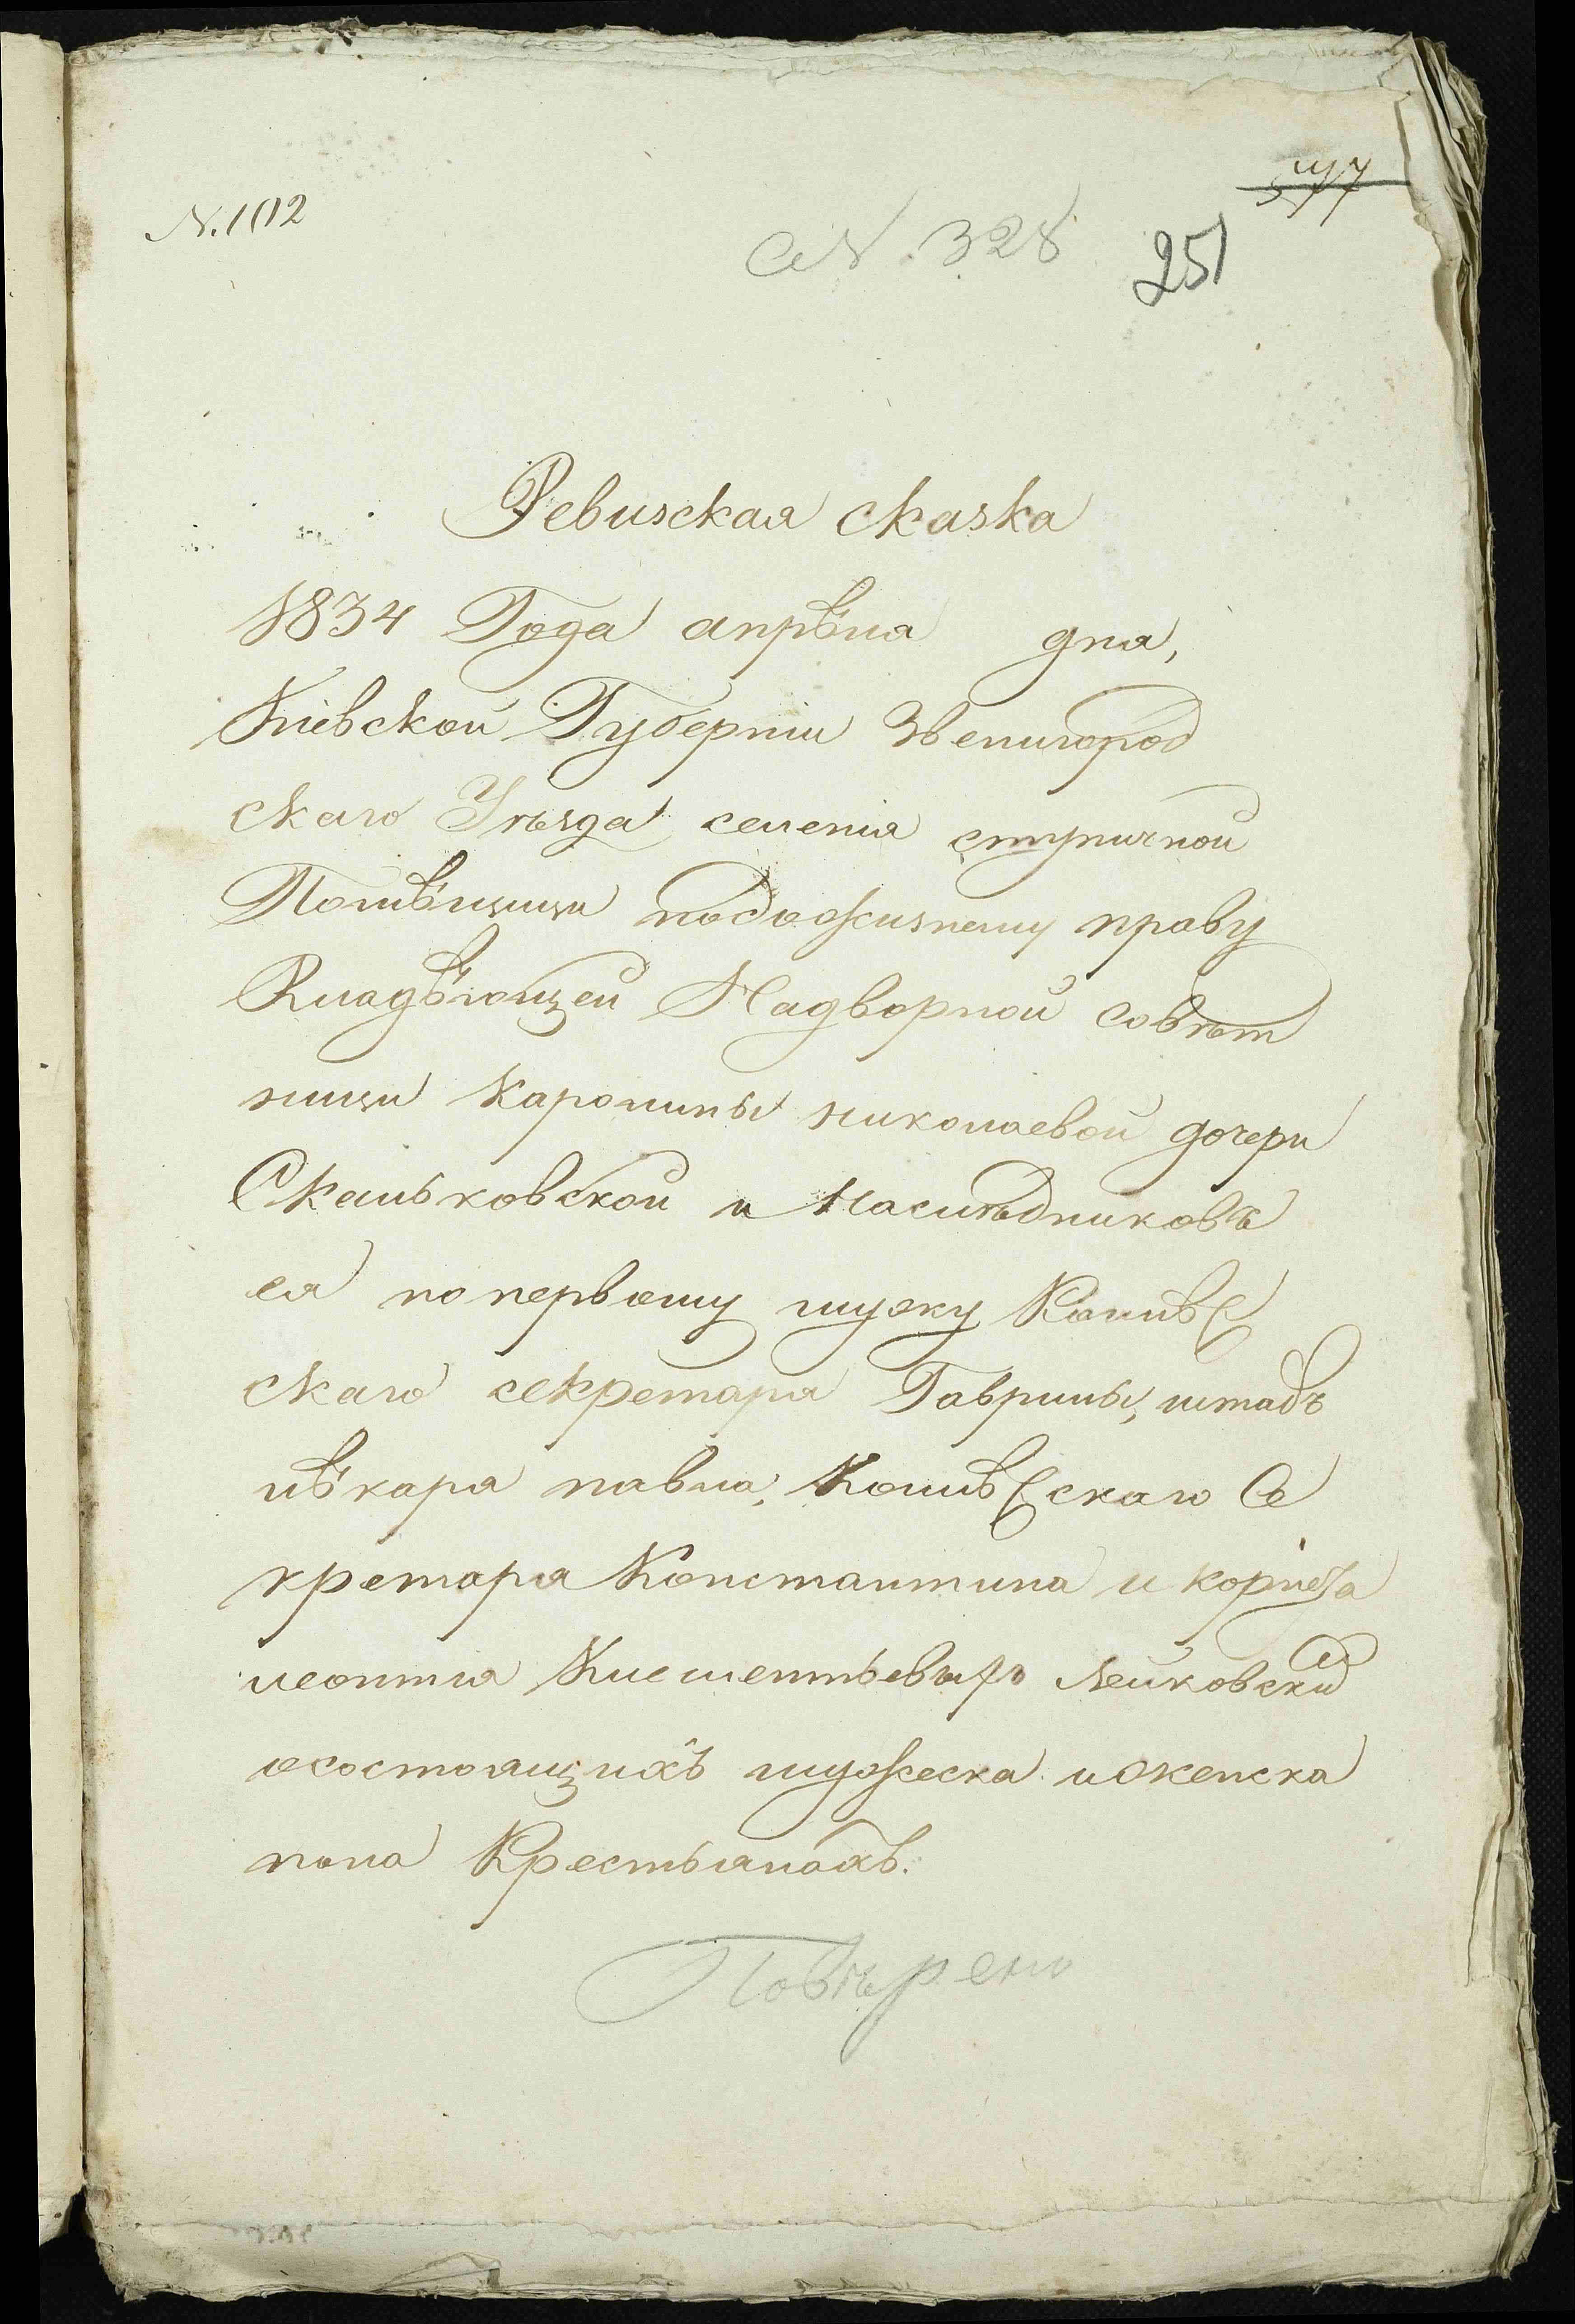 N. 102
N. 328
251
Ревизская сказка
1834 Года апрѣля дня,
Кіевской Губерніи Звенигород
скаго Уѣзда селенія ступичной
Помѣщицы подожизнему праву
Владѣющей Надворной совѣт
ницы Каролины николаевой дочери
Скальковской и Наслѣдниковъ
ея по первому мужу Колиѣс
скаго секретаря Гаврилы, штабъ
лѣкаря павла, Колиѣсскаго Се
кретаря Константина и корнета
леонтія Клементьевыхъ
осостоящихъ мужеска и женска
пола Крестьянахъ.
Повѣрено